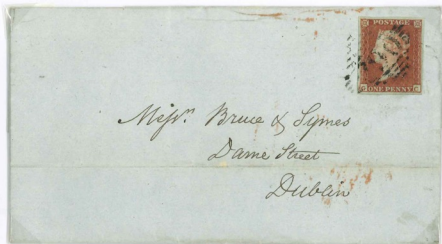 POSTAGE
ONE PENNY
Messrs. Bruce & Symes
Dame Street
Dublin